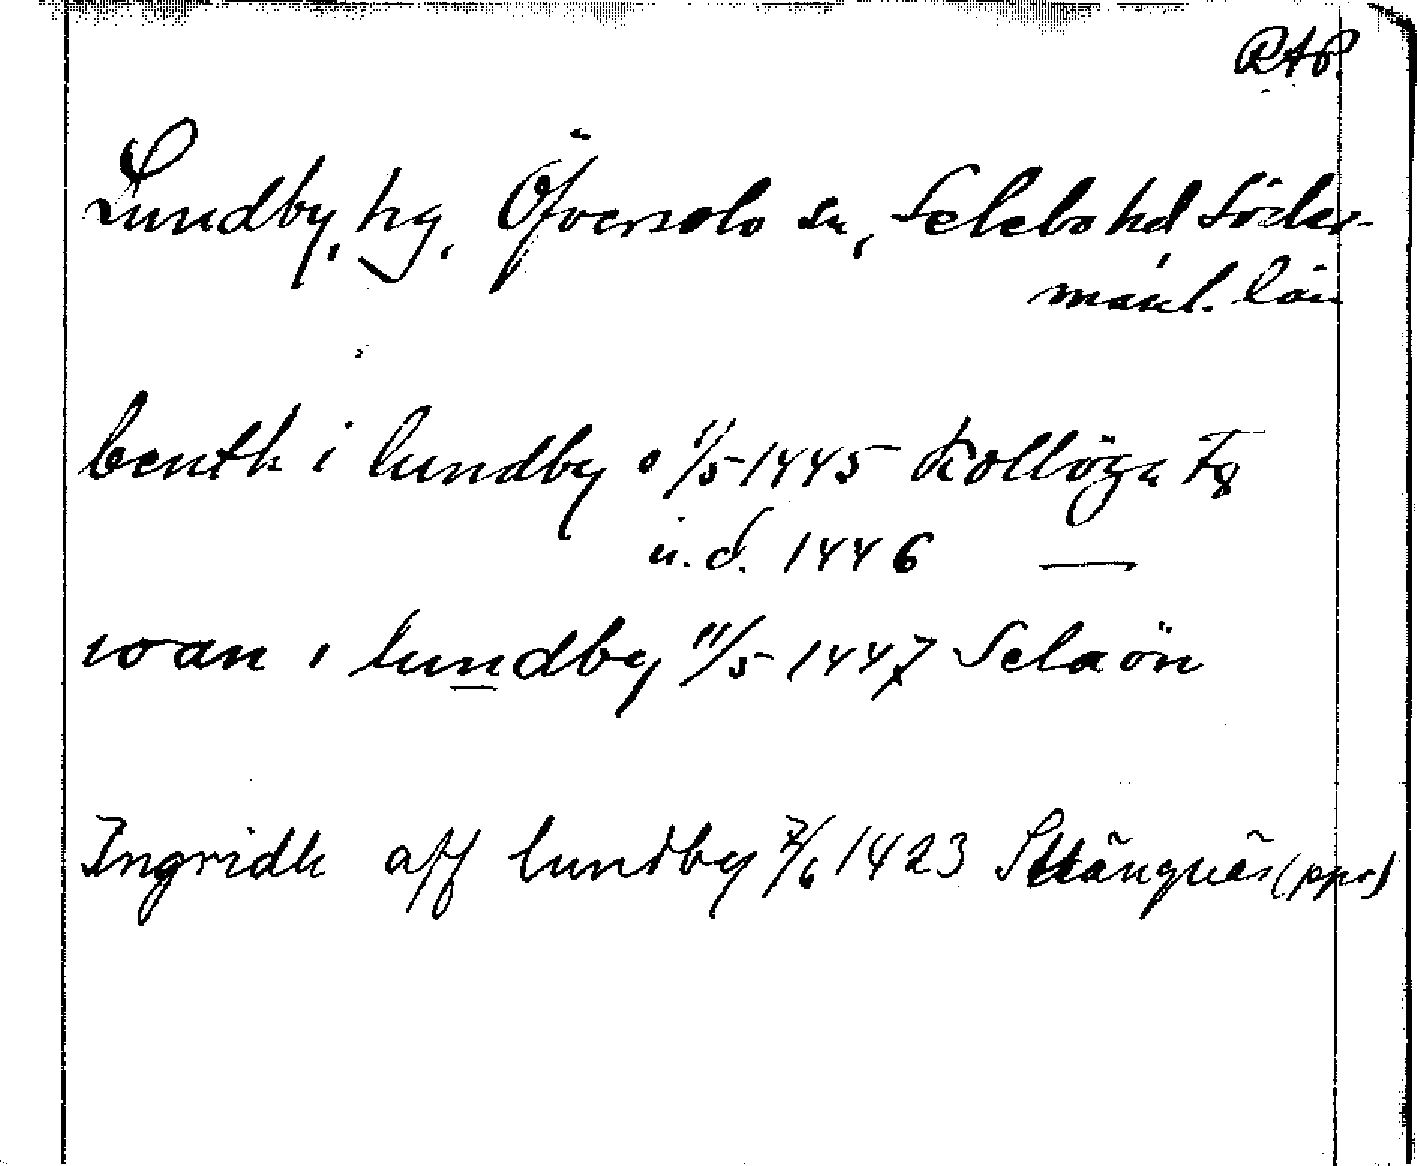 RAP.
Lundby, hg, Öfverselö sn, Selebo hd Söder-
manl. län
benkt i lundby 11/5 1445 Kollöga Fg
u.d. 1446 —
ioan i lundby 11/5 1447 Selaön
Ingridh aff lundby 7/6 1423 Strängnäs (ppr)